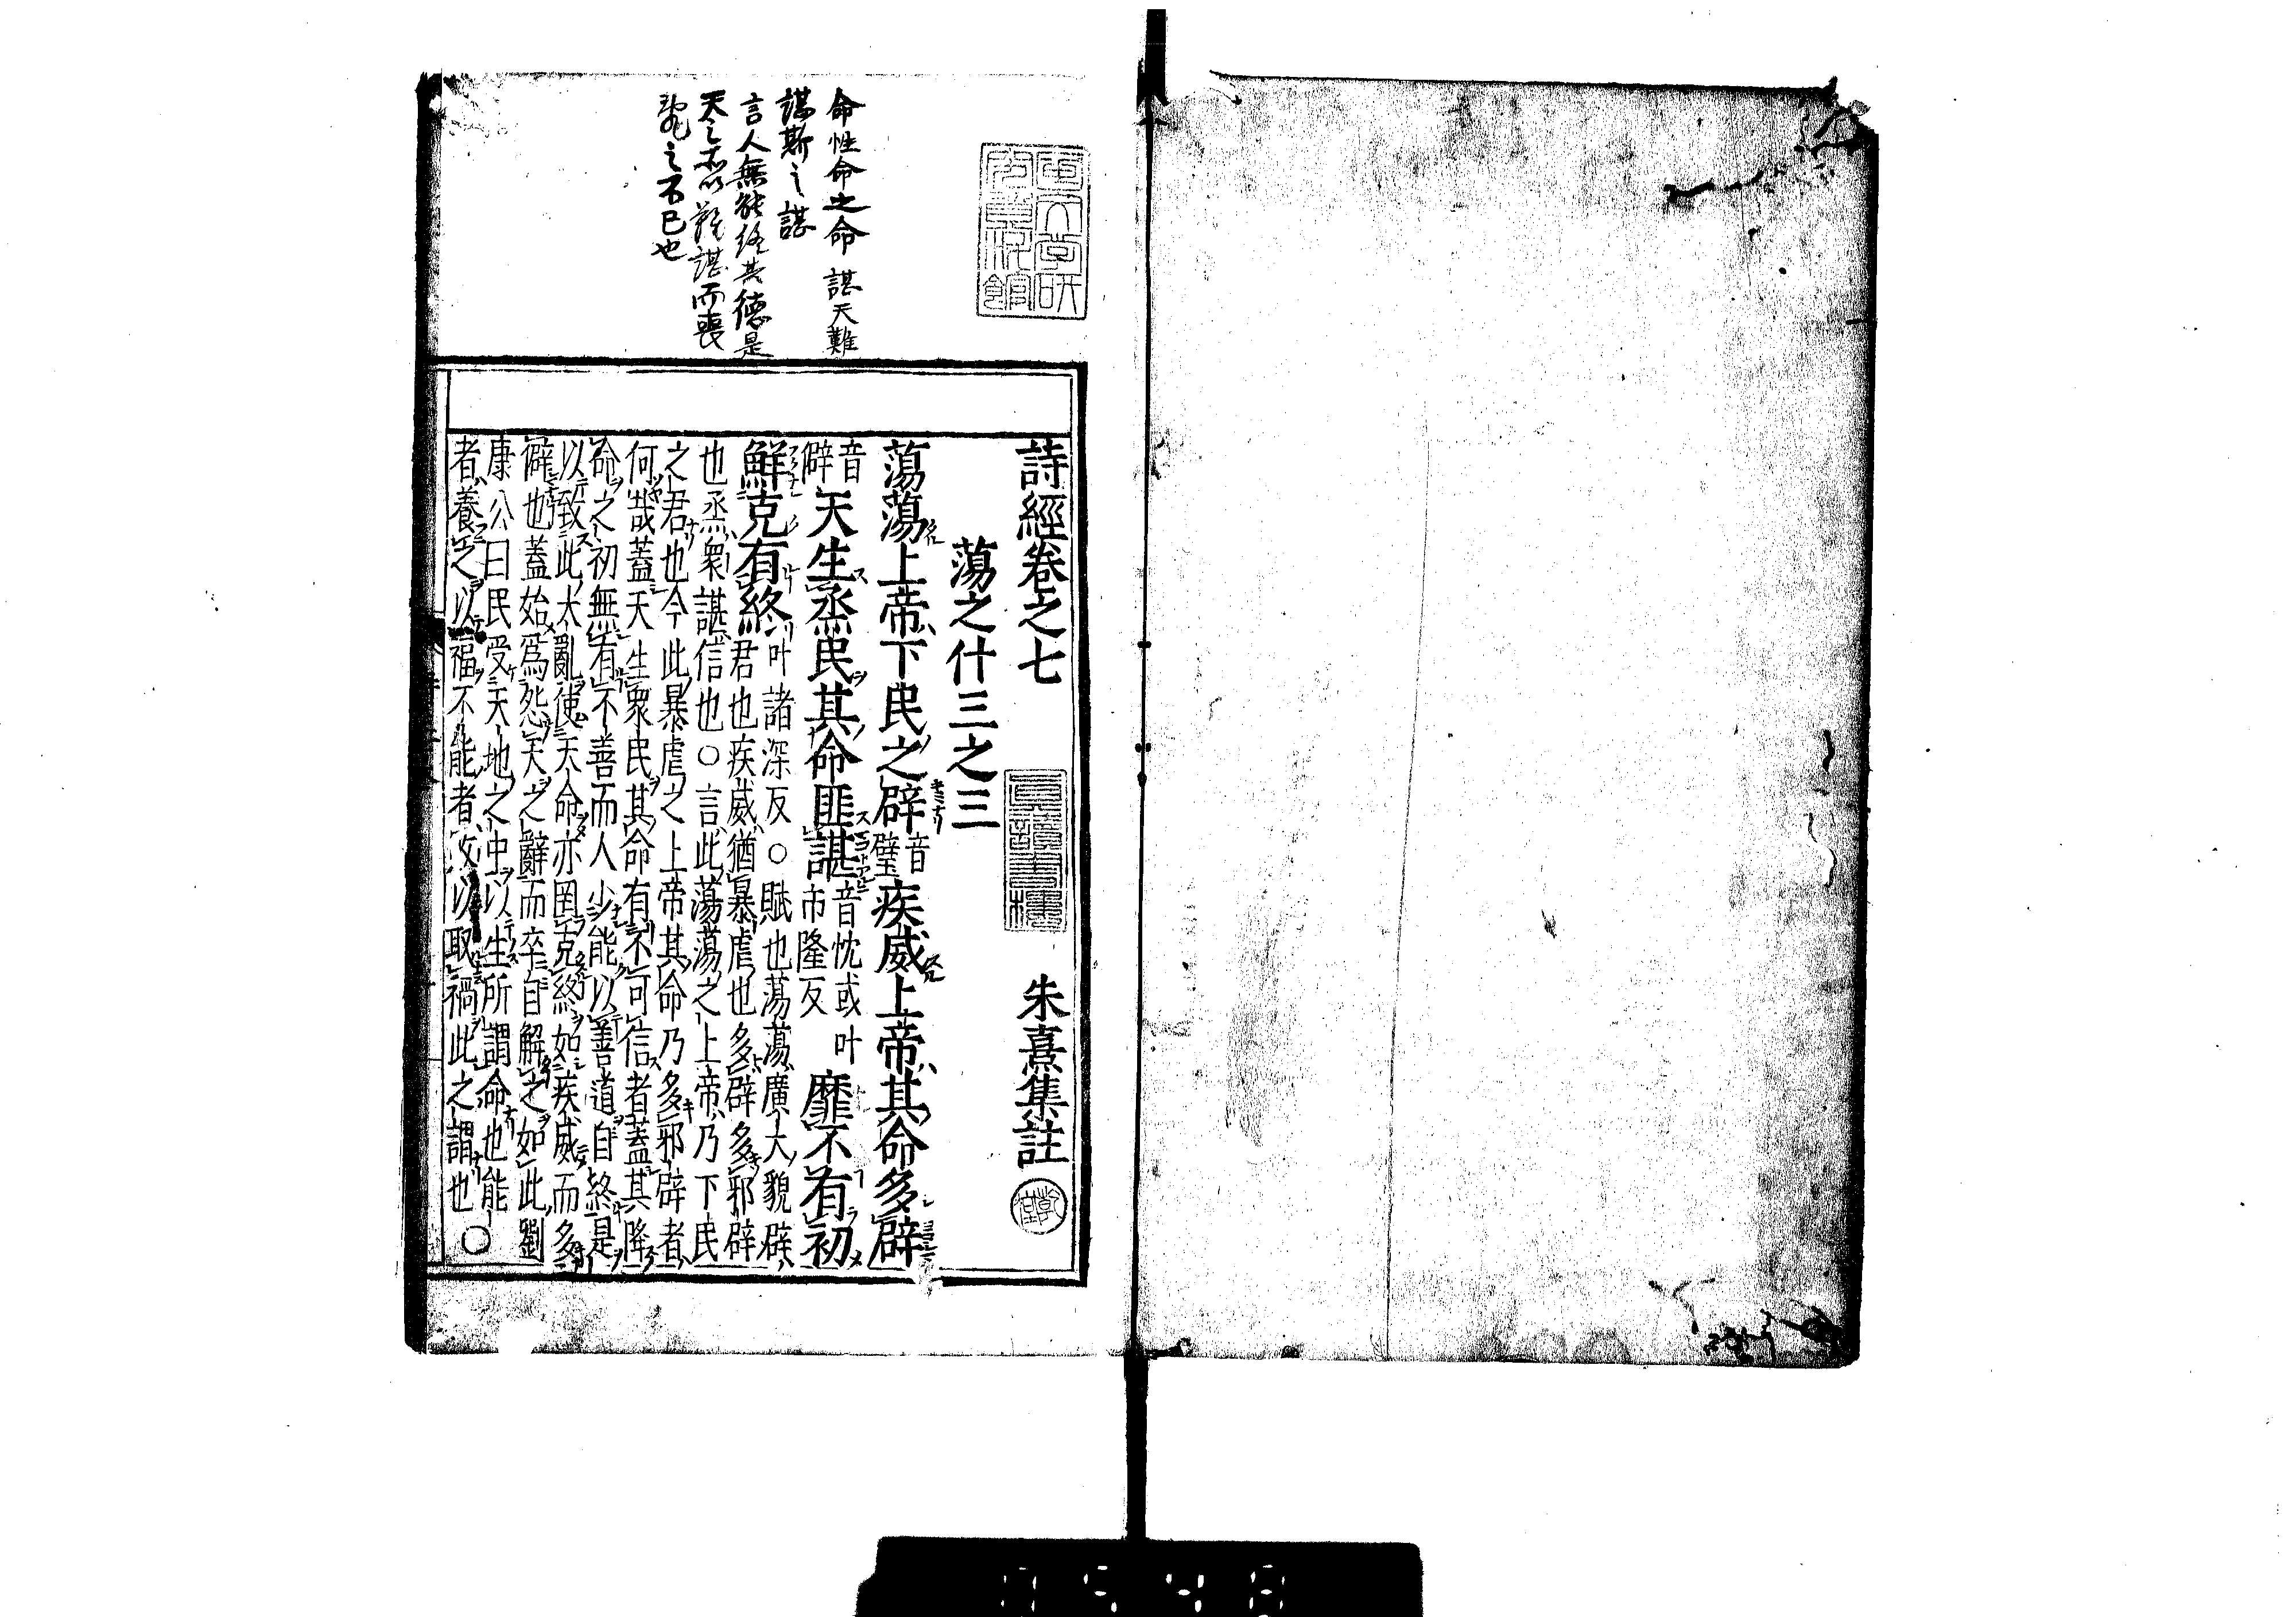 命性命之命 諶天難
諶斯之諶
言人無能終其德是
天之所以難諶而喪
亂之不已也
詩經卷之七 朱熹集註
蕩之什三之三
蕩蕩上帝下民之辟音璧疾威上帝其命多辟
音僻天生烝民其命匪諶音忱或叶市隆反靡不有初
鮮克有終叶諸深反○賦也蕩蕩廣大貌辟
君也疾威猶暴虐也多辟多邪辟
也烝衆諶信也○言此蕩蕩之上帝乃下民
之君也今此暴虐之上帝其命乃多邪辟者
何哉蓋天生衆民其命有不可信者蓋其降
命之初無有不善而人少能以善道自終是
以致此大亂使天命亦罔克終如疾威而多
僻也蓋始爲怨天之辭而卒自解之如此劉
康公曰民受天地之中以生所謂命也能
者養之以福不能者敗以取禍此之謂也○